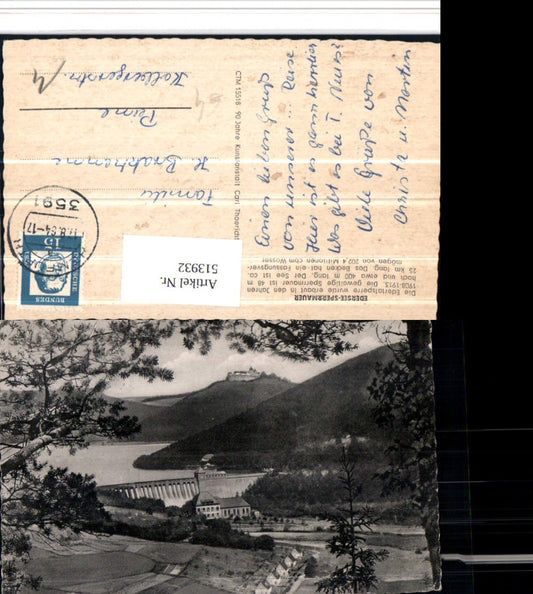 EDERSEE-SPERRMAUER
Die Edertalsperre wurde erbaut in den Jahren
1908-1915. Die gewaltige Sperrmauer ist 48 m
hoch und etwa 400 m lang. Der See ist ca.
25 km lang. Das Becken hat ein Fassungsver-
mögen von 202,4 Millionen cbm Wasser
Einen lieben Gruß
von unserer ... Reise
Hier ist es ganz herrlich
Was gibt es bei T. Neues?
Viele Grüße von
Christa u. Martin
CTK 15518 90 Jahre Kunstanstalt Carl Thoericht
Familie
H.
Peine
3591
11.8.64-17
15
DEUTSCHE
BUNDES
Artikel Nr.
513932